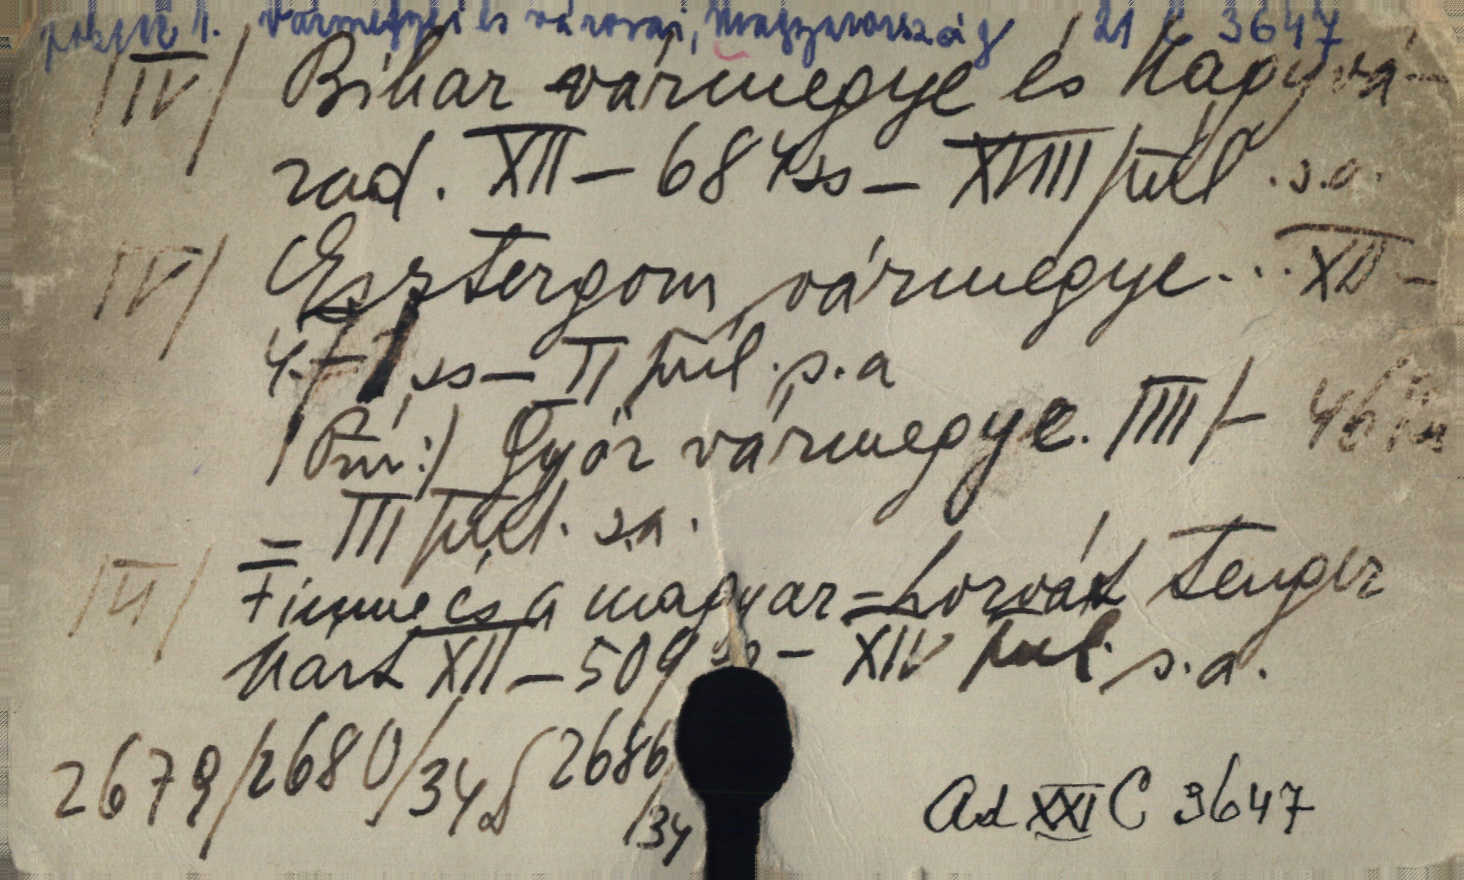 1. Vármegyéi és városai, Magyarország 21 C 3647
IV/ Bihar vármegye és Nagyvá-
rad. XII - 684 ss - XVIII pül. s.a.
IV/ Esztergom vármegye... XII -
ss - II pül. s.a
Győr vármegye. IIII/-
= III pül. s.a.
III/ Fiume és a magyar=horvát tenger
part XII - 509 - XIV pül. s.a.
2679/2680/34 2686
/34
Ad XXI C 3647